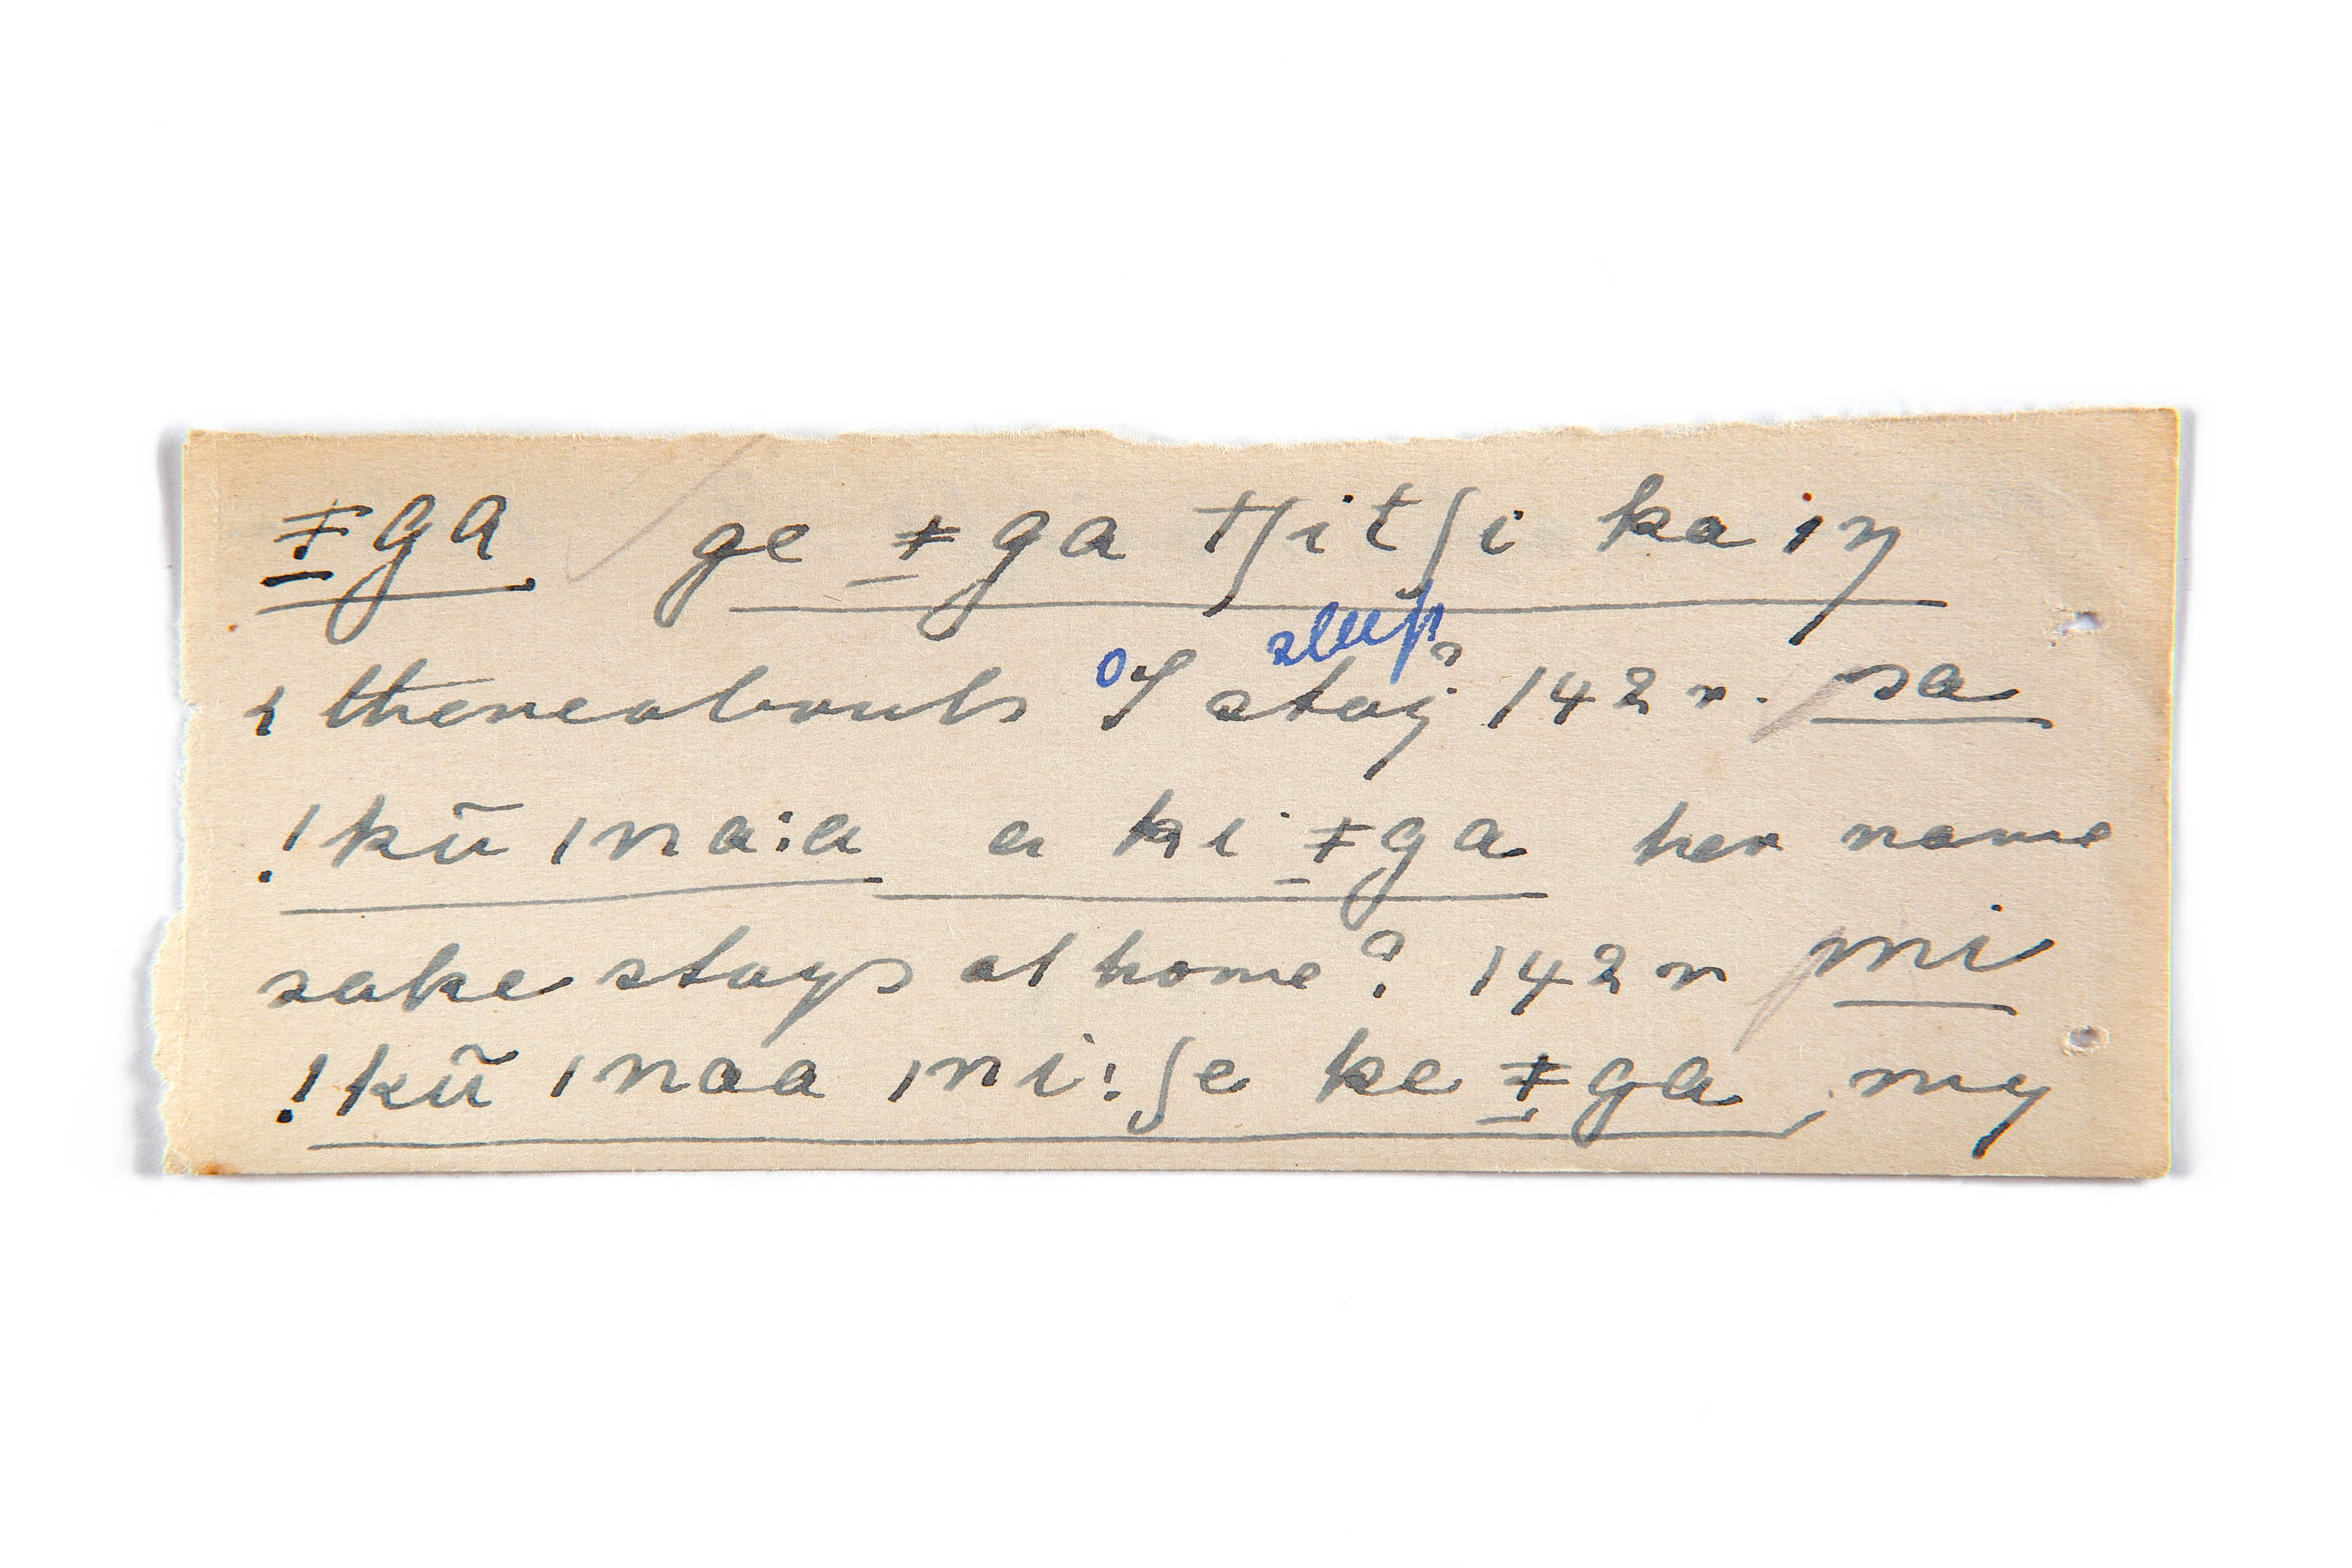 ǂga ge ǂga tʃitʃi ka iŋ
sleep
ı thereabouts of I stay? 142 r. sa
!kũ ǀna:a a ki ǂga her name
sake stays at home? 142 r mi
!kũ ǀnaa ǀni:ʃe ke ǂga, my